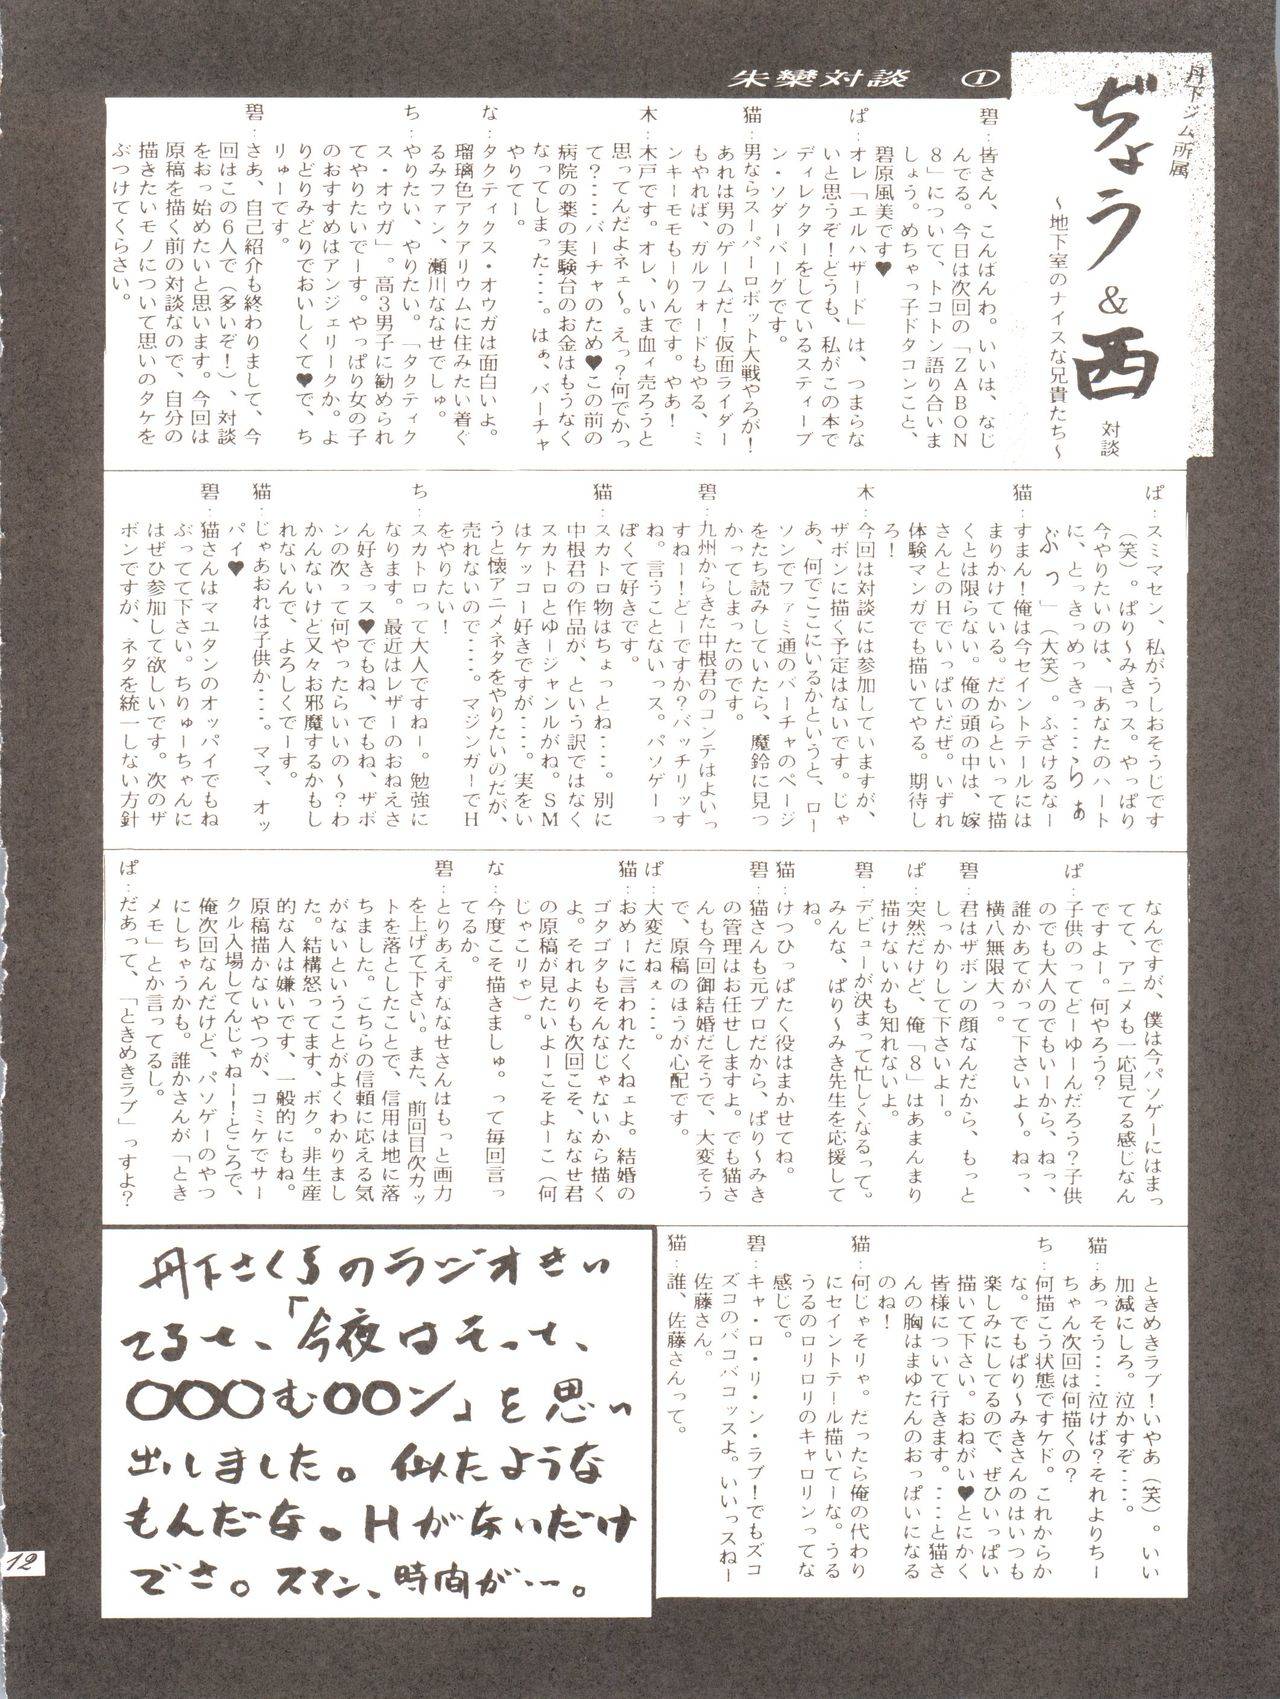 朱欒対談 ①
丹下ジム所属
ぢょう&西 対談
～地下室のナイスな兄貴たち～
碧:皆さん、こんばんわ。いいは、なじ
んでる。今日は次回の「ZABON
8」について、トコトン語り合いま
しょう。めちゃっ子ドタコンこと、
碧原風美です♥
ぱ:オレ「エルハザード」は、つまらな
いと思うぞ!どうも、私がこの本で
ディレクターをしているスティーブ
ン・ソダーバーグです。
猫:男ならスーパーロボット大戦やろが!
あれは男のゲームだ!仮面ライダー
もやれば、ガルフォードもやる、ミ
ンキーモモもーりんです。やあ!
木:木戸です。オレ、いま血ィ売ろうと
思ってんだよネェ～。えっ?何でかっ
て?....バーチャのため♥この前の
病院の薬の実験台のお金はもうなく
なってしまった....。はぁ、バーチャ
やりてー。
な:タクティクス・オウガは面白いよ。
瑠璃色アクアリウムに住みたい着ぐ
るみファン、瀬川ななせでしゅ。
ち:やりたい、やりたい。「タクティク
ス・オウガ」。高3男子に勧められ
てやりたいでーす。やっぱり女の子
のおすすめはアンジェリークか。よ
りどりみどりでおいしくて♥で、ち
りゅーです。
碧:さあ、自己紹介も終わりまして、今
回はこの6人で(多いぞ!)、対談
をおっ始めたいと思います。今回は
原稿を描く前の対談なので、自分の
描きたいモノについて思いのタケを
ぶつけてくらさい。
ぱ:スミマセン、私がうしおそうじです
(笑)。ぱり～みきっス。やっぱり
今やりたいのは、「あなたのハート
に、とっきっめっきっ.....らぁ
ぶっ」(大笑)。ふざけるなー
猫:すまん!俺は今セイントテールには
まりかけている。だからといって描
くとは限らない。俺の頭の中は、嫁
さんとのHでいっぱいだぜ。いずれ
体験マンガでも描いてやる。期待し
ろ!
木:今回は対談には参加していますが、
ザボンに描く予定はないです。じゃ
あ、何でここにいるかというと、ロー
ソンでファミ通のバーチャのページ
をたち読みしていたら、魔鈴に見つ
かってしまったのです。
碧:九州からきた中根君のコンテはよいっ
すねー!どーですか?バッチリッす
ね。言うことないっス。パソゲーっ
ぽくて好きです。
猫:スカトロ物はちょっとね....。別に
中根君の作品が、という訳ではなく
スカトロとゆージャンルがね。SM
はケッコー好きですが....。実をい
うと懐アニメネタをやりたいのだが、
売れないので....。マジンガーでH
をやりたい!
ち:スカトロって大人ですねー。勉強に
なります。最近はレザーのおねえさ
ん好きっス♥でもね、でもね、ザボ
ンの次って何やったらいいの～?わ
かんないけど又々お邪魔するかもし
れないんで、よろしくでーす。
猫:じゃあおれは子供か....。ママ、オッ
パイ♥
碧:猫さんはマユタンのオッパイでもね
ぶってて下さい。ちりゅーちゃんに
はぜひ参加して欲しいです。次のザ
ボンですが、ネタを統一しない方針
なんですが、僕は今パソゲーにはまっ
てて、アニメも一応見てる感じなん
ですよー。何やろう?
ぱ:子供のってどーゆーんだろう?子供
のでも大人のでもいーから、ねっ、
誰かあてがって下さいよ～。ねっ、
横八無限大っ。
碧:君はザボンの顔なんだから、もっと
しっかりして下さいよー。
ぱ:突然だけど、俺「8」はあまんまり
描けないかも知れないよ。
碧:デビューが決まって忙しくなるって。
みんな、ぱり～みき先生を応援して
ね。
猫:けつひっぱたく役はまかせてね。
碧:猫さんも元プロだから、ぱり～みき
の管理はお任せしますよ。でも猫さ
んも今回御結婚だそうで、大変そう
で、原稿のほうが心配です。
ぱ:大変だねぇ....。
猫:おめーに言われたくねェよ。結婚の
ゴタゴタもそんなじゃないから描く
よ。それよりも次回こそ、ななせ君
の原稿が見たいよーこそよーこ(何
じゃこりゃ)。
な:今度こそ描きましゅ。って毎回言っ
てるか。
碧:とりあえずななせさんはもっと画力
を上げて下さい。また、前回目次カッ
トを落としたことで、信用は地に落
ちました。こちらの信頼に応える気
がないということがよくわかりまし
た。結構怒ってます、ボク。非生産
的な人は嫌いです、一般的にもね。
原稿描かないやつが、コミケでサー
クル入場してんじゃねー!ところで、
俺次回なんだけど、パソゲーのやつ
にしちゃうかも。誰かさんが「とき
メモ」とか言ってるし。
ぱ:だあって、「ときめきラブ」っすよ?
ときめきラブ!いやあ(笑)。いい
加減にしろ。泣かすぞ....。
猫:あっそう....泣けば?それよりちー
ちゃん次回は何描くの?
ち:何描こう状態ですケド。これからか
な。でもぱり～みきさんのはいつも
楽しみにしてるので、ぜひいっぱい
描いて下さい。おねがい♥とにかく
皆様について行きます。....と猫さ
んの胸はまゆたんのおっぱいになる
のね!
猫:何じゃそりゃ。だったら俺の代わり
にセイントテール描いてーな。うる
うるのロリロリのキャロリンってな
感じで。
碧:キャ・ロ・リ・ン・ラブ!でもズコ
ズコのバコバコッスよ。いいっスねー
佐藤さん。
猫:誰、佐藤さんって。
丹下さくらのラジオきい
てると、「今夜はそっと、
〇〇〇む〇〇ン」を思い
出しました。似たような
もんだな。Hがないだけ
でさ。スマン、時間が…。
12